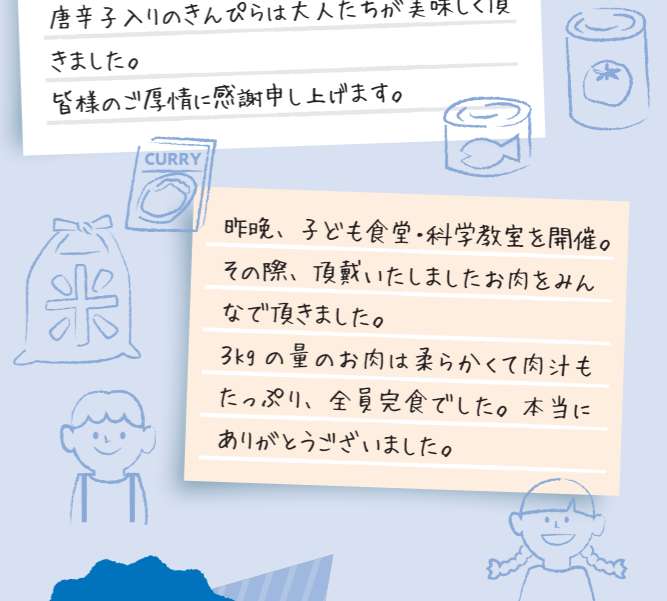 唐辛子入りのきんぴらは大人たちが美味しく頂
きました。
皆様のご厚情に感謝申し上げます。
CURRY
昨晩、子ども食堂・科学教室を開催。
その際、頂戴いたしましたお肉をみん
なで頂きました。
3kgの量のお肉は柔らかくて肉汁も
たっぷり、全員完食でした。本当に
ありがとうございました。
米